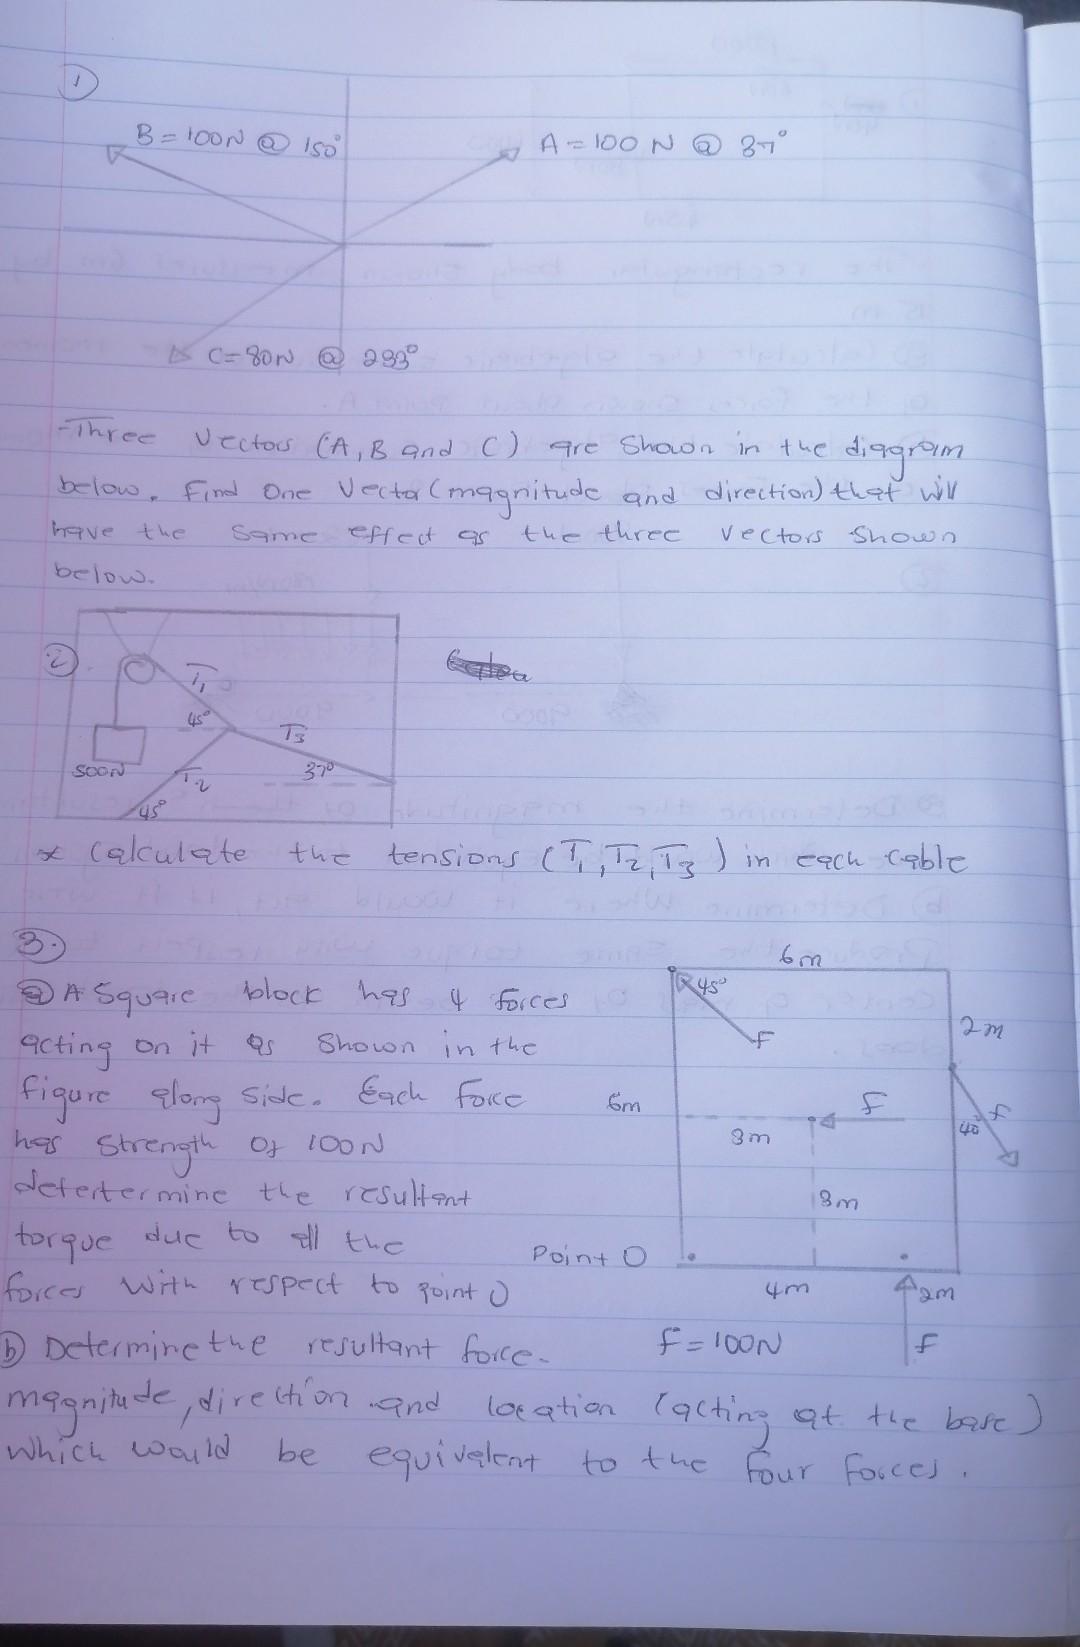 1
B = 100N @ 150°
A = 100 N @ 37°
C = 80N @ 233°
- Three Vectors (A, B and C) are Shown in the diagram
below. Find One Vector (magnitude and direction) that will
have the Same effect as the three vectors shown
below.
2
T1
45°
T3
500N
T2
37°
45°
* Calculate the tensions (T1, T2, T3) in each cable
3.
6m
a) A Square block has 4 forces
45°
F
acting on it as Shown in the
2m
figure along side. Each force
6m
F
F
has Strength Of 100N
3m
40°
detertermine the resultant
3m
torque due to all the
Point O
forces With respect to point O
4m
2m
b) Determine the resultant force.
F = 100N
F
magnitude, direction and location (acting at the base)
which would be equivalent to the four forces.